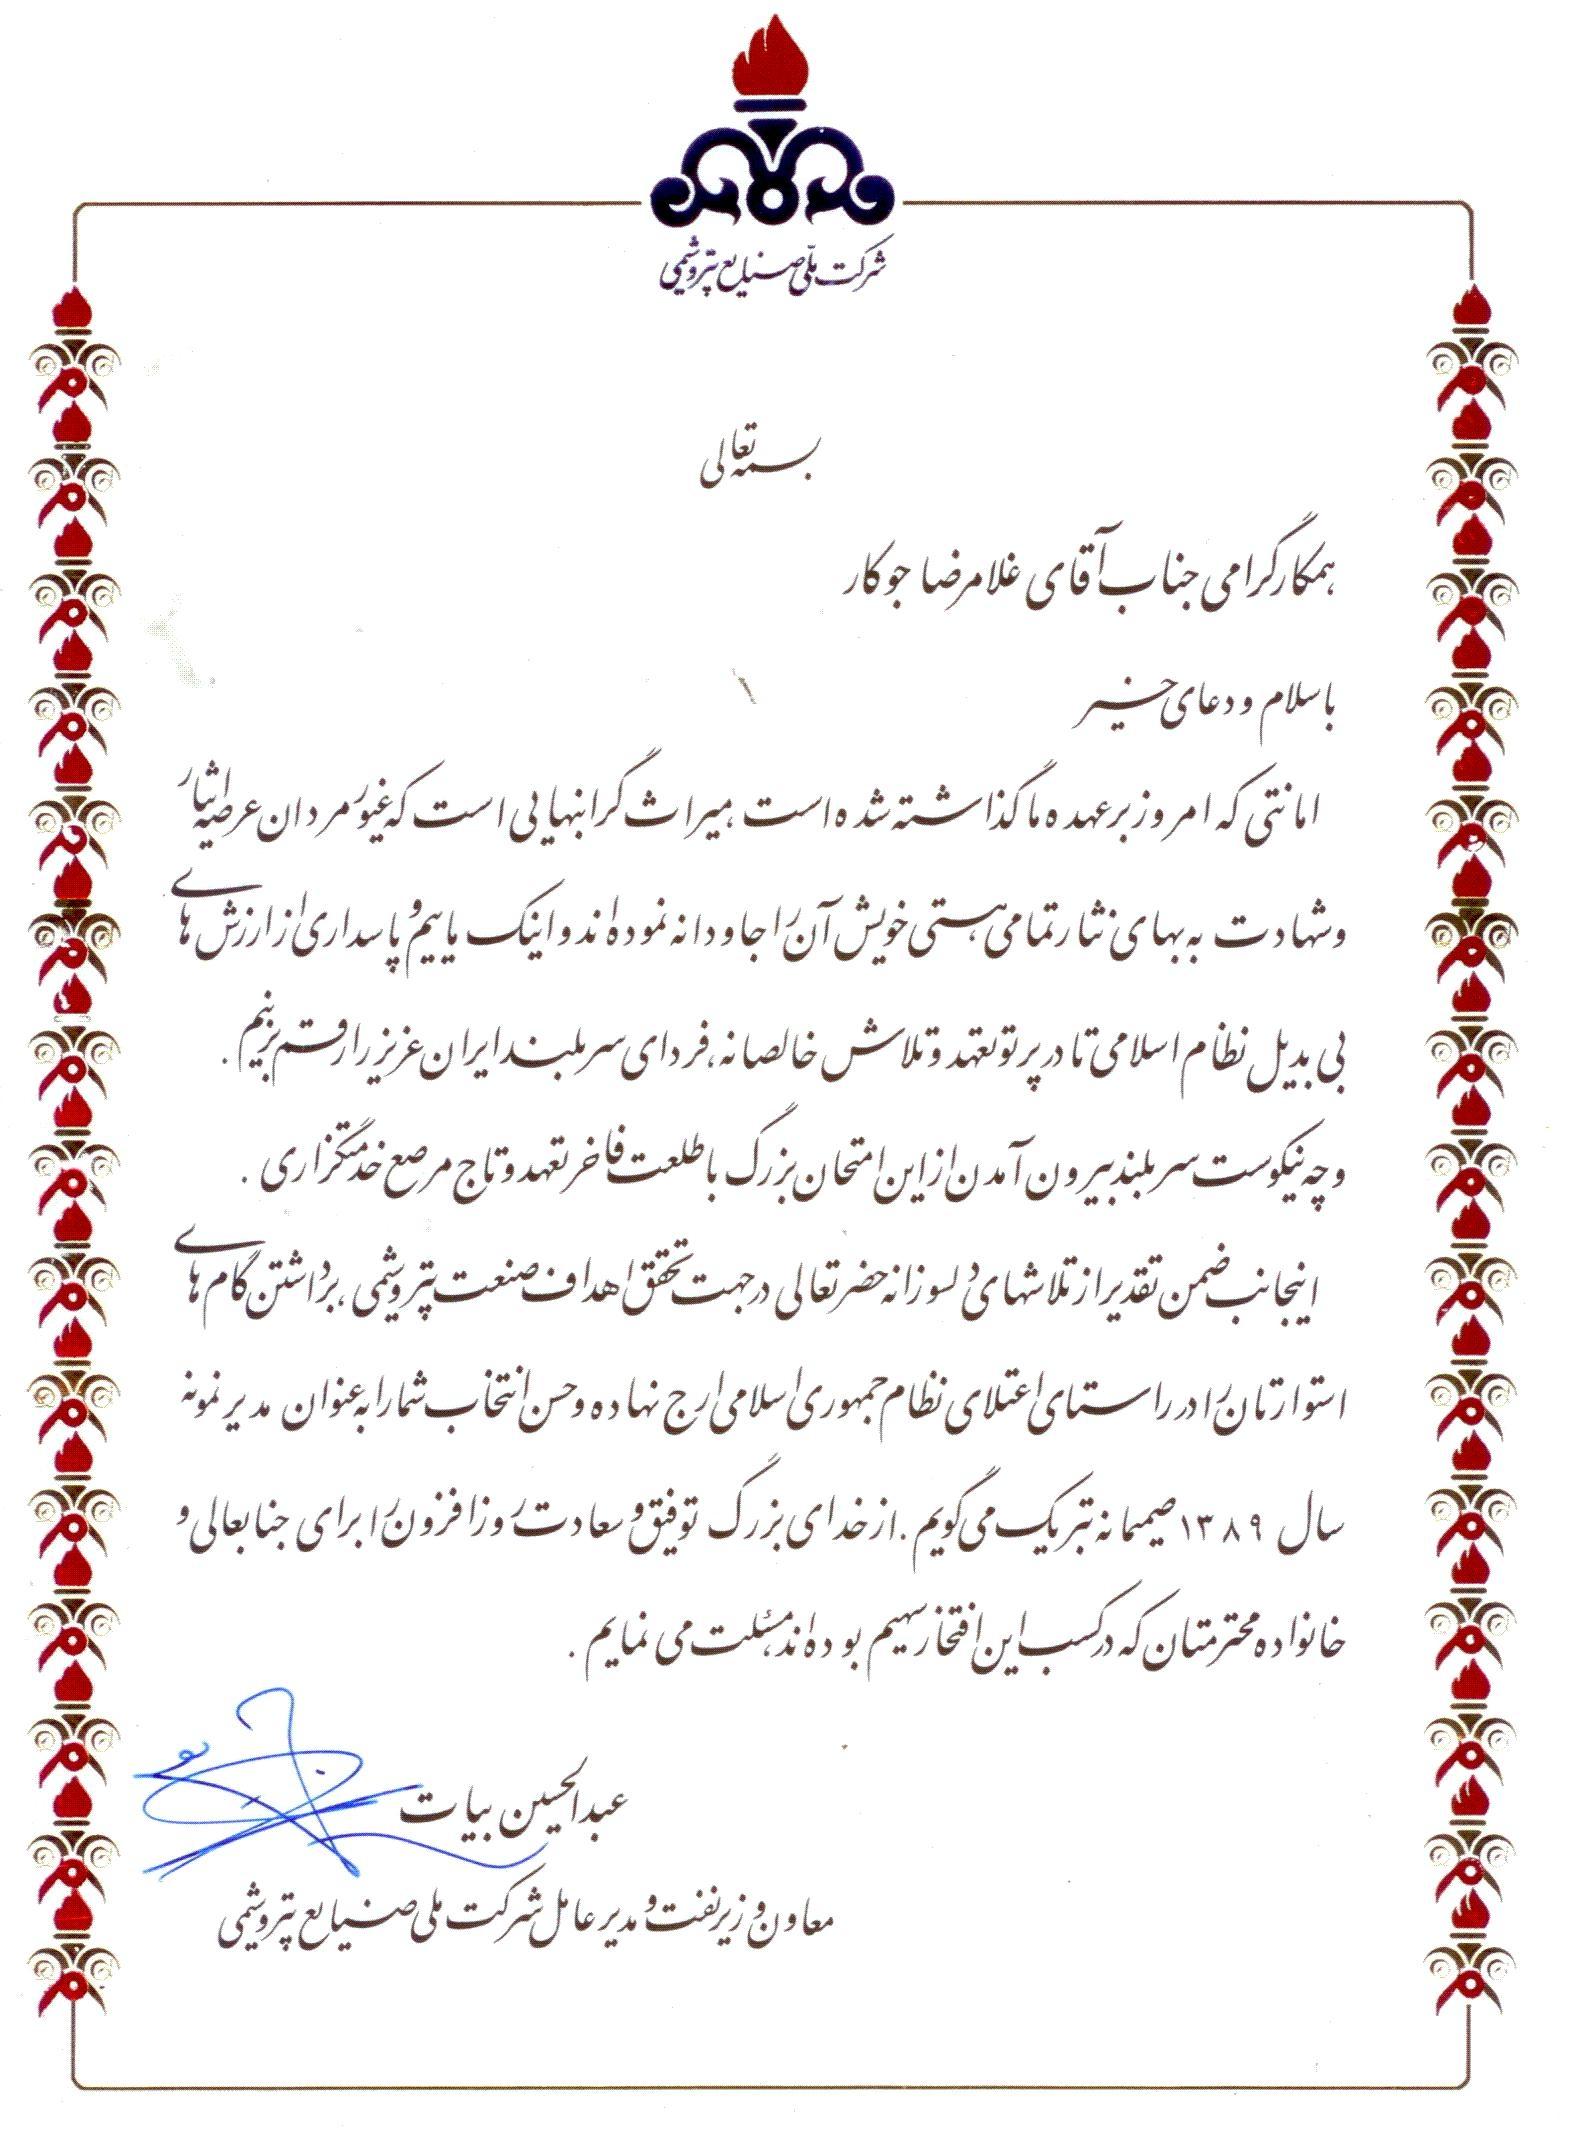 شرکت ملّی صنایع پتروشیمی
بسمه تعالی
همکار گرامی جناب آقای غلامرضا جوکار
با سلام و دعای خیر
امانتی که امروز بر عهده ما گذاشته شده است ، میراث گرانبهایی است که غیور مردان عرصه ایثار
و شهادت به بهای نثار تمامی هستی خویش آن را جاودانه نموده اند و اینک ماییم و پاسداری از ارزش های
بی بدیل نظام اسلامی تا در پرتو تعهد و تلاش خالصانه ، فردای سربلند ایران عزیز را رقم بزنیم .
و چه نیکوست سربلند بیرون آمدن از این امتحان بزرگ با طلعت فاخر تعهد و تاج مرصع خدمتگزاری .
اینجانب ضمن تقدیر از تلاشهای دلسوزانه حضرتعالی در جهت تحقق اهداف صنعت پتروشیمی ، برداشتن گام های
استوارتان را در راستای اعتلای نظام جمهوری اسلامی ارج نهاده و حسن انتخاب شما را به عنوان مدیر نمونه
سال ۱۳۸۹ صمیمانه تبریک می گویم . از خدای بزرگ توفیق و سعادت روزافزون را برای جنابعالی و
خانواده محترمتان که در کسب این افتخار سهیم بوده اند ، مسئلت می نمایم .
عبدالحسین بیات
معاون وزیر نفت و مدیر عامل شرکت ملی صنایع پتروشیمی